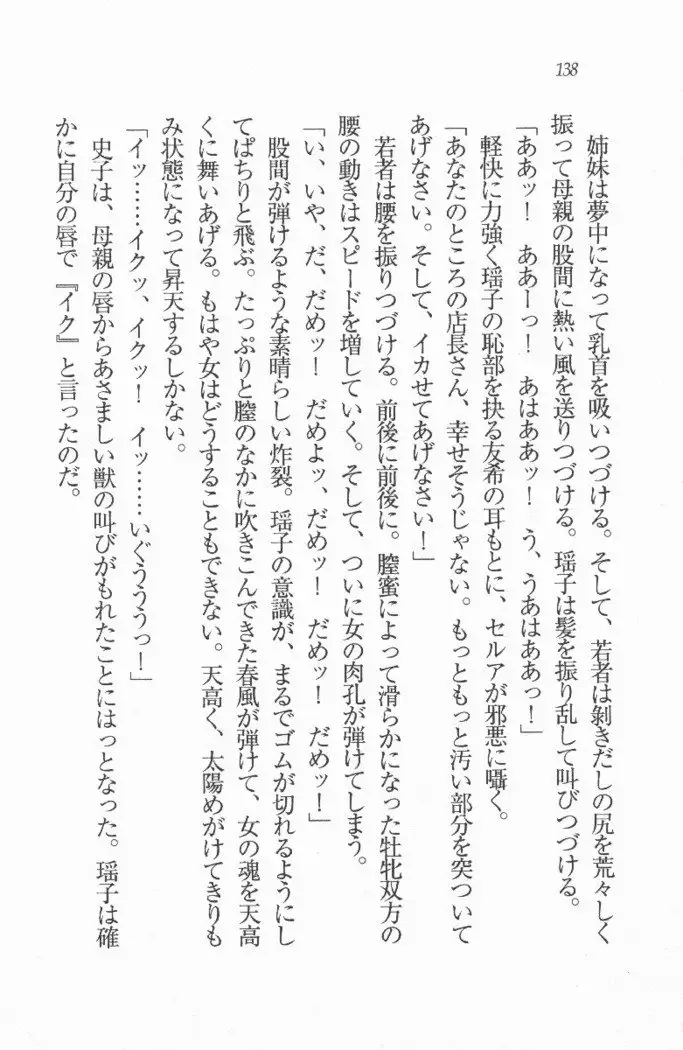 138
姉妹は夢中になって乳首を吸いつづける。そして、若者は剝きだしの尻を荒々しく
振って母親の股間に熱い風を送りつづける。瑶子は髪を振り乱して叫びつづける。
「ああッ！　ああーっ！　あはああッ！　う、うあはああっ！」
軽快に力強く瑶子の恥部を抉る友希の耳もとに、セルアが邪悪に囁く。
「あなたのところの店長さん、幸せそうじゃない。もっともっと汚い部分を突ついて
あげなさい。そして、イカせてあげなさい！」
若者は腰を振りつづける。前後に前後に。膣蜜によって滑らかになった牡牝双方の
腰の動きはスピードを増していく。そして、ついに女の肉孔が弾けてしまう。
「い、いや、だ、だめッ！　だめよッ、だめッ！　だめッ！　だめッ！」
股間が弾けるような素晴らしい炸裂。瑶子の意識が、まるでゴムが切れるようにし
てぱちりと飛ぶ。たっぷりと膣のなかに吹きこんできた春風が弾けて、女の魂を天高
くに舞いあげる。もはや女はどうすることもできない。天高く、太陽めがけてきりも
み状態になって昇天するしかない。
「イッ……イクッ、イクッ！　イッ……いぐうううっ！」
史子は、母親の唇からあさましい獣の叫びがもれたことにはっとなった。瑶子は確
かに自分の唇で『イク』と言ったのだ。